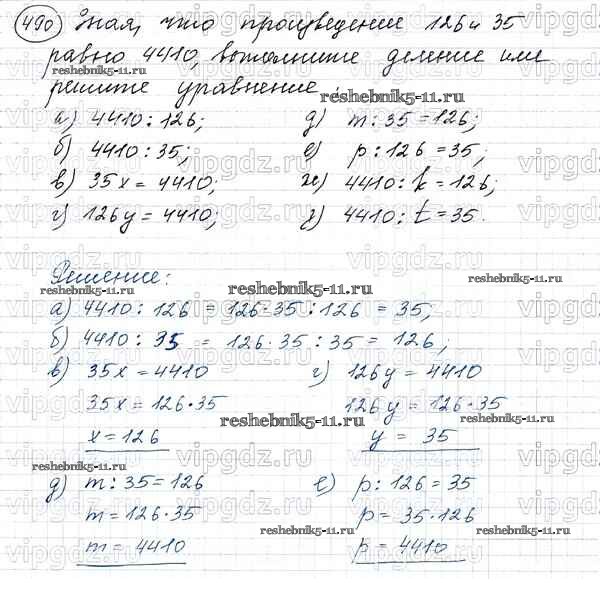 490 Зная, что произведение 126 и 35
равно 4410, выполните деление или
решите уравнение:
а) 4410 : 126; д) m : 35 = 126;
б) 4410 : 35; е) p : 126 = 35;
в) 35x = 4410; ж) 4410 : k = 126;
г) 126y = 4410; з) 4410 : t = 35.
Решение:
а) 4410 : 126 = 126·35 : 126 = 35;
б) 4410 : 35 = 126·35 : 35 = 126;
в) 35x = 4410 г) 126y = 4410
35x = 126·35 126y = 126·35
x = 126 y = 35
д) m : 35 = 126 е) p : 126 = 35
m = 126·35 p = 35·126
m = 4410 p = 4410
reshebnik5-11.ru
vipgdz.ru